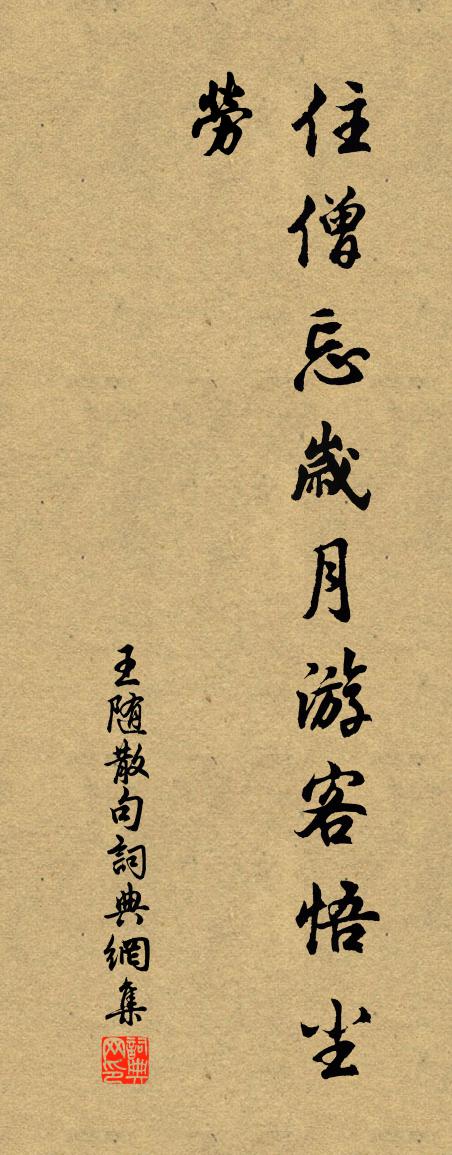 住僧忘歲月游客悟尘
勞
王随散句詞典網集
詞典网印